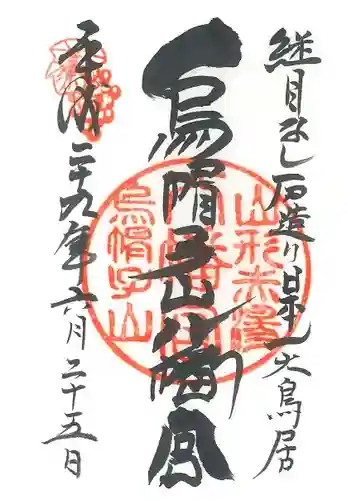 継目なし石造り日本一大鳥居
烏帽子山八幡宮
平成二十九年六月二十五日
山形赤湯
烏帽子山